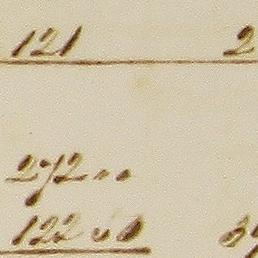 121 2
272 " "
122 00